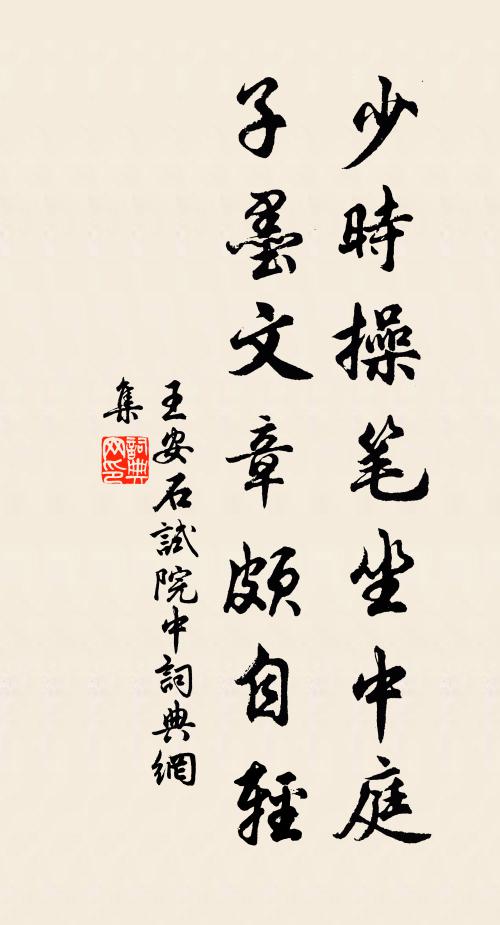 少時操笔坐中庭
子墨文章頗自輕
王安石試院中詞典網
集
詞典网印